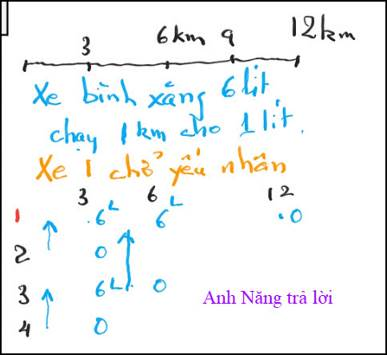 3 6km 9 12km
Xe bình xăng 6 lít
chạy 1 km cho 1 lít.
Xe 1 chở yếu nhân
3 6 12
1 6L 6L 0
2 0
3 6L 0
4 0
Anh Năng trả lời